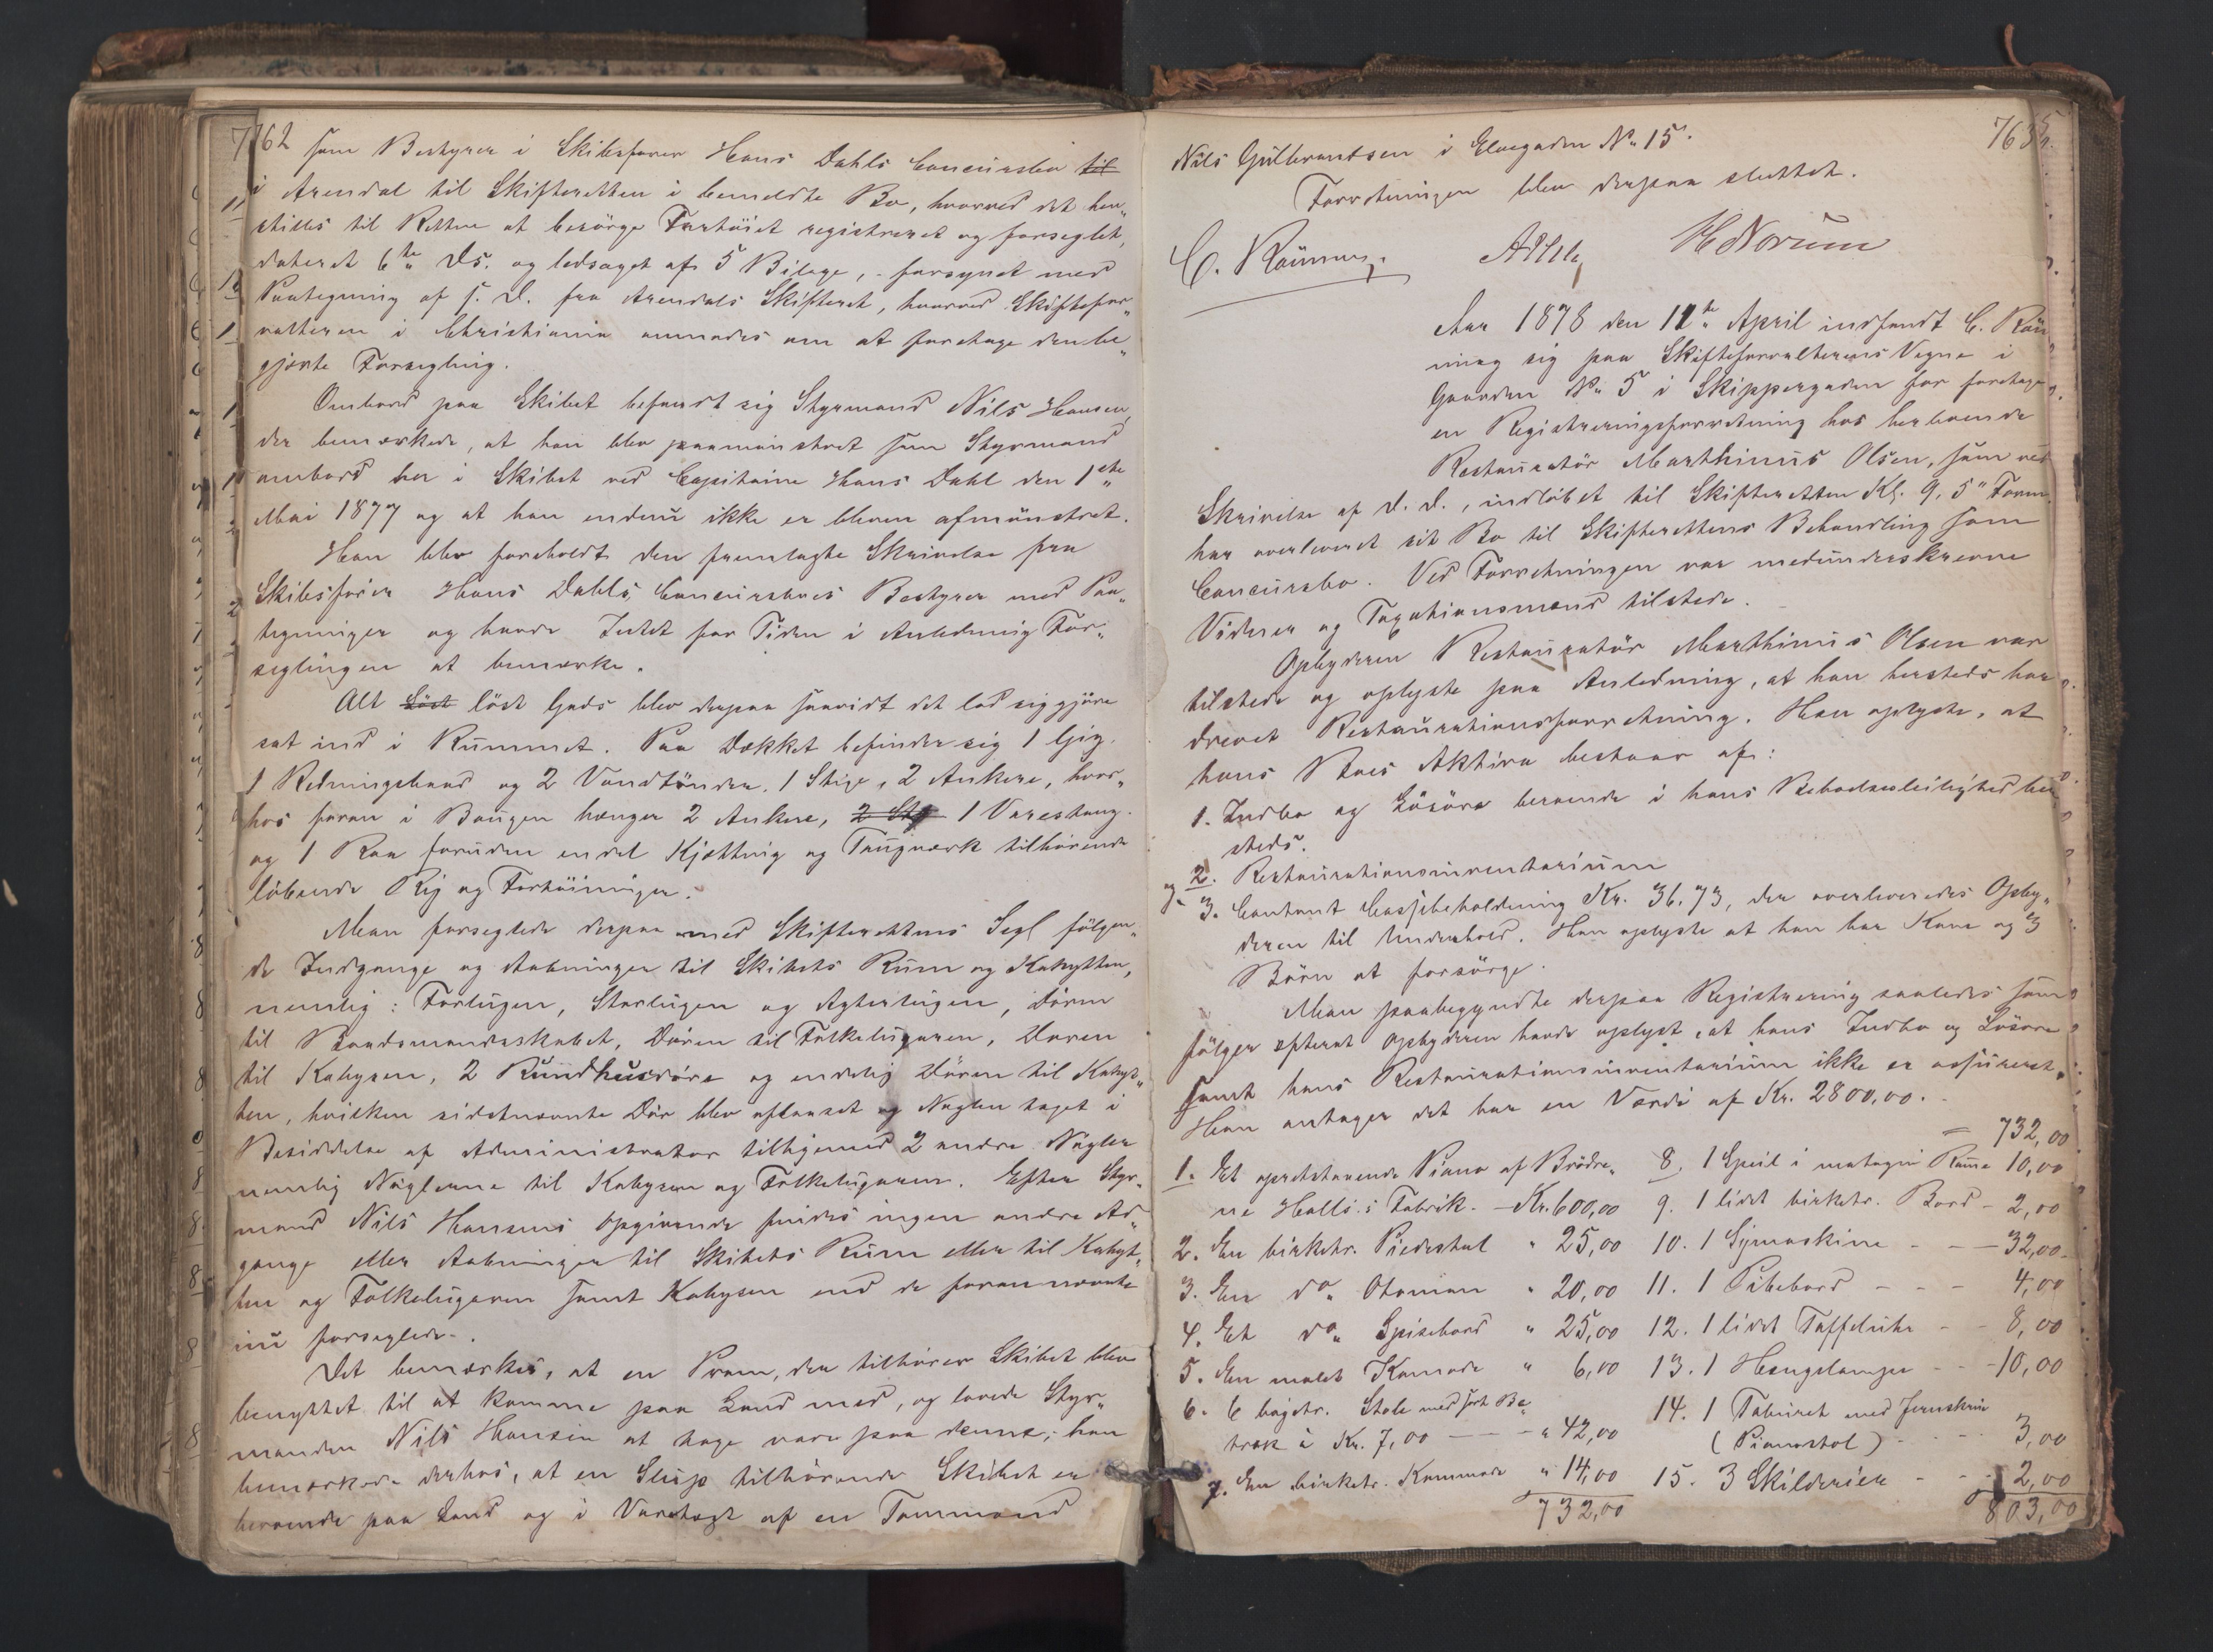 762
som Bestyrer i Skibsfører Hans Dahls Concursbo til
i Arendal til Skifteretten i bemeldte Bo, hvorved det hen„
stilles til Retten at besørge Fartøiet registreret og forseglet,
dateret 6te Ds. og ledsaget af 5 Bilage, forsynet med
Paategning af s. D. fra Arendals Skifteret, hvorved Skiftefor„
valteren i Christiania anmodes om at foretage den be„
gjærte Forsegling.
Ombord paa Skibet befandt sig Styrmand Nils Hansen,
der bemærkede, at han blev paamønstret som Styrmand
ombord her i Skibet ved Capitaine Hans Dahl den 1ste
Mai 1877 og at han endnu ikke er bleven afmønstret.
Han blev foreholdt den fremlagte Skrivelse fra
Skibsfører Hans Dahls Concursboes Bestyrer med Paa„
tegninger og havde Intet for Tiden i Anledning For„
seglingen at bemærke.
Alt Löst löst Gods blev derpaa saavidt det lod sig gjøre
sat ind i Rummet. Paa Dækket befinder sig 1 Gig.
1 Redningsbaad og 2 Vandtønder, 1 Stige, 2 Ankere, hvor„
hos foran i Bougen hænger 2 Ankere, 2 Stg 1 Varestang
og 1 Raa foruden endel Kjætting og Taugværk tilhørende
løbende Rig og Fortøininger.
Man forseglede derpaa med Skifterettens Segl følgen„
de Indgange og Aabninger til Skibets Rum og Kahytten,
nemlig: Forlugen, Storlugen og Agterlugen, Døren
til Baadsmandsskabet, Døren til Folkelugaren, Døren
til Kabysen, 2 Rundhusdøre og endelig Døren til Kahyt„
ten, hvilken sidstnævnte Dør blev aflaaset og Nøglen taget i
Besiddelse af Administrator tilligemed 2 andre Nøgler
nemlig Nøglerne til Kabysen og Folkelugaren. Efter Styr„
mand Nils Hansens Opgivende findes ingen andre Ad„
gange eller Aabninger til Skibets Rum eller til Kahyt„
ten og Folkelugaren samt Kabysen end de forannævnte
nu forseglede.
Det bemærkes, at en Pram, der tilhører Skibet blev
benyttet til at komme paa Land med, og lovede Styr„
manden Nils Hansen at tage vare paa denne; han
bemærkede derhos, at en Slup tilhørende Skibet er
beroende paa Land og i Varetægt af en Tømmand
763
Nils Gulbrandsen i Elvegaden No 15.
Forretningen blev derpaa sluttet.
C. Rönning. H Norum
Aar 1878 den 11te April indfandt C. Rön„
ning sig paa Skifteforvalterens Vegne i
Gaarden No 5 i Skippergaden for foretage
en Registreringsforretning hos herboende
Restauratör Marthinus Olsen, som ved
Skrivelse af D. D., indløbet til Skifteretten Kl. 9, 5" Form.
har overleveret sit Bo til Skifterettens Behandling som
Concursbo. Ved Forretningen var medunderskrevne
Vidner og Taxationsmænd tilstede.
Opbyderen Restauratör Marthinus Olsen var
tilstede og oplyste paa Anledning, at han hersteds har
drevet Restaurationsforretning. Han oplyste, at
hans Boes Aktiva bestaar af:
1. Indbo og Løsøre beroende i hans Beboelsesleilighed her„
steds.
og 2. Restaurationsinventarium
3. Contant Cassebeholdning Kr. 36,73, der overleveredes Opby„
deren til Underhold. Han oplyste at han har Kone og 3
Børn at forsørge.
Man paabegyndte derpaa Registrering saaledes som
følger efterat Opbyderen havde oplyst, at hans Indbo og Løsøre
samt hans Restaurationsinventarium ikke er assureret.
Han antager det har en Værdi af Kr. 2800,00.
= 732,00
1. Et opretstaaende Piano af Brødre„
ne Halls Fabrik. - Kr. 600,00
2. En birketr. Piedestal " 25,00
3. En do Otoman " 20,00
4. Et do Spisebord " 25,00
5. En malet Komode " 6,00
6. 6 bøgetr. Stole med sort Be„
træk à Kr. 7,00 - - " 42,00
7. En birketr. Kommode " 14,00
732,00
8. 1 Speil i mahogni Ramme 10,00
9. 1 lidet birketr. Bord - 2,00
10. 1 Symaskine - - 32,00
11. 1 Pibebord - - - 4,00
12. 1 lidet Taffeluhr - - 8,00
13. 1 Hængelampe - - 10,00
14. 1 Taburet med Jernskrue
(Pianostol) - - - 3,00
15. 3 Skilderier - - - 2,00
803,00